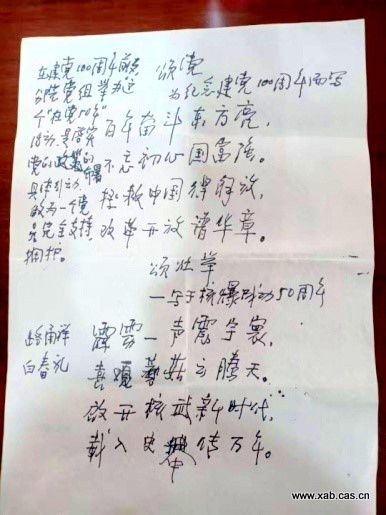 在建党100周年前夕
分院党组举办这
个"在党50年"
活动,是落实
党的政策的
具体行动,
做为一个党
员完全支持
拥护。
颂党
为纪念建党100周年而写
百年奋斗东方亮,
不忘初心国富强。
拯救中国得解放,
改革开放谱华章。
颂壮举
—写于核爆成功50周年
路甬祥
白春礼
霹雳一声震宇寰,
喜观蘑菇云腾天。
啟开核武新时代,
载入史册传万年。
www.xab.cas.cn